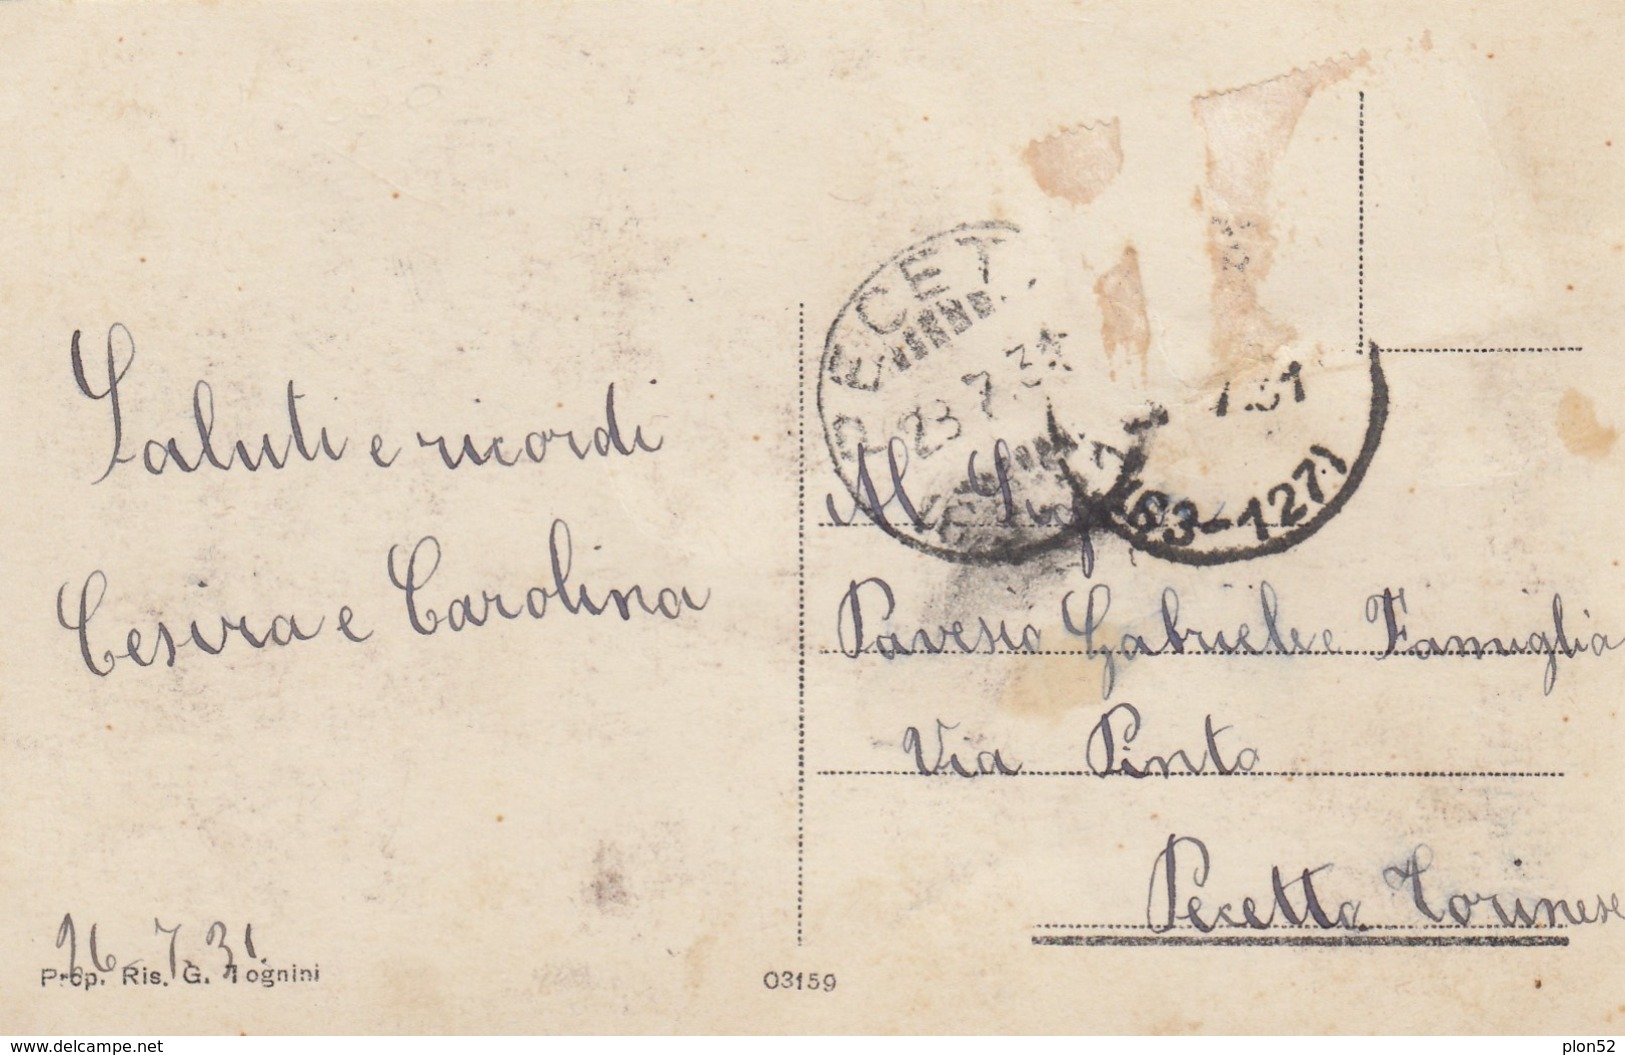 Saluti e ricordi
Cesira e Carolina
26-7.31.
Prop. Ris. G. Tognini
03159
PECET
23.7.31
7.31
(63-127)
Al Sig
Pavesio Gabriele e Famiglia
Via Pinto
Pecetto Torinese
www.delcampe.net
plon52